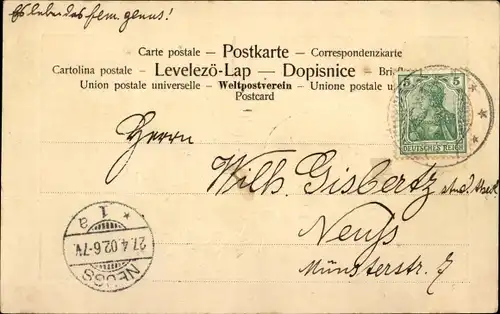 Es lebe das fem. genus!
Carte postale – Postkarte – Correspondenzkarte
Cartolina postale – Levelezö-Lap — Dopisnice – Brief
Union postale universelle – Weltpostverein – Unione postale u
Postcard
5 5
DEUTSCHES REICH
Herrn
Wilh. Gisbertz
Neuß
Münsterstr. 7
* 1 a
27.4.02.6-7V.
NEUSS